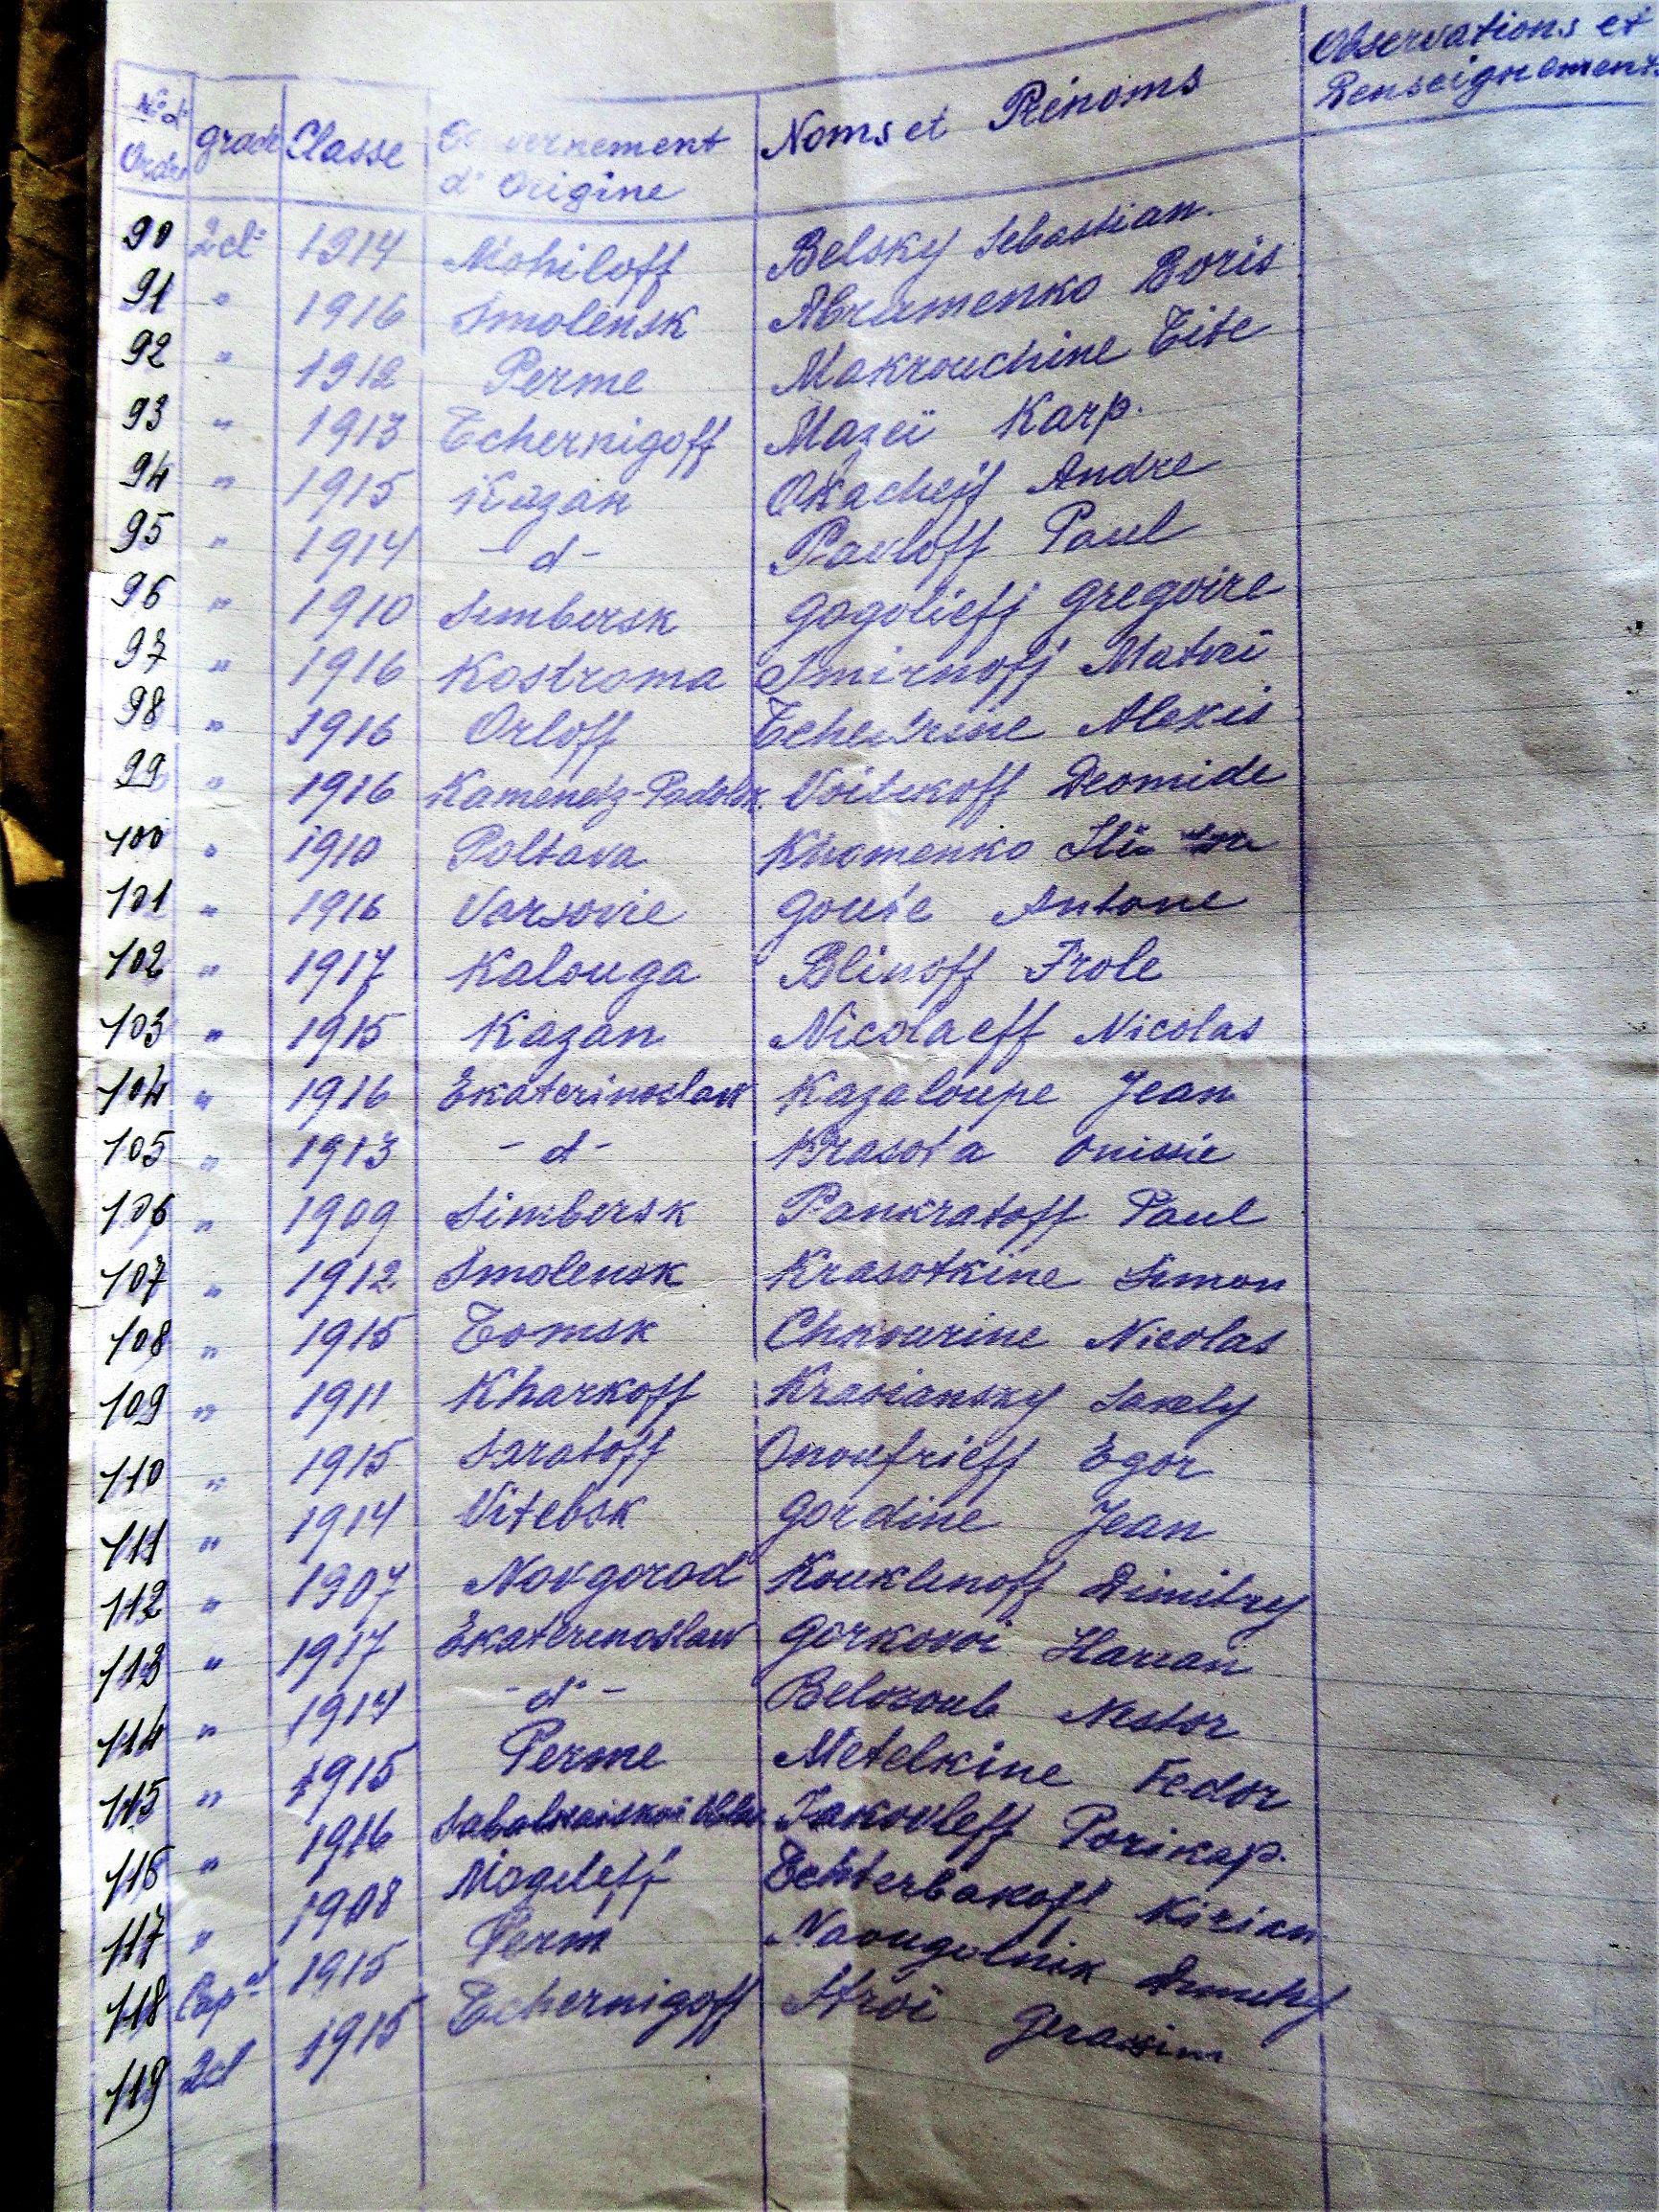 N° d' Ordre grade Classe Gouvernement d' Origine Noms et Prénoms Observations et Renseignements
90 2cl. 1914 Mohiloff Belsky Sebastian.
91 " 1916 Smolensk Abramenko Boris
92 " 1912 Perme Makrouchine Tite
93 " 1913 Tchernigoff Mazeï Karp.
94 " 1915 Kazan Okacheff Andre
95 " 1914 - d - Pavloff Paul
96 " 1910 Simbersk Gogolieff Gregoire
97 " 1916 Kostroma Smirnoff Matveï
98 " 1916 Orloff Alexis
99 " 1916 Kamenetz-Podolsk. Voitikoff Deomide
100 " 1910 Poltava Khomenko
101 " 1916 Varsovie Antone
102 " 1917 Kalouga Blinoff Frole
103 " 1915 Kazan Nicolaeff Nicolas
104 " 1916 Ekaterinoslaw Kazaloupe Jean
105 " 1913 - d - Krasota Onissie
106 " 1909 Simbersk Pankratoff Paul
107 " 1912 Smolensk Krasotkine Simon
108 " 1915 Tomsk Chkourine Nicolas
109 " 1911 Kharkoff Krasiansky Savely
110 " 1915 Saratoff Onoufrieff Egor
111 " 1914 Vitebsk Gordine Jean
112 " 1907 Novgorod Kouklinoff Dimitry
113 " 1917 Ekaterinoslaw Gorkovoï Harian
114 " 1914 - d° - Belozoub Nestor
115 " 1915 Perme Metelkine Fedor
116 " 1916 Iakovleff Porikap.
117 " 1908 Mogileff Kirian
118 Cap al 1915 Perm Naougolnik Dimitry
119 2cl 1915 Tchernigoff Stroï Gerassim